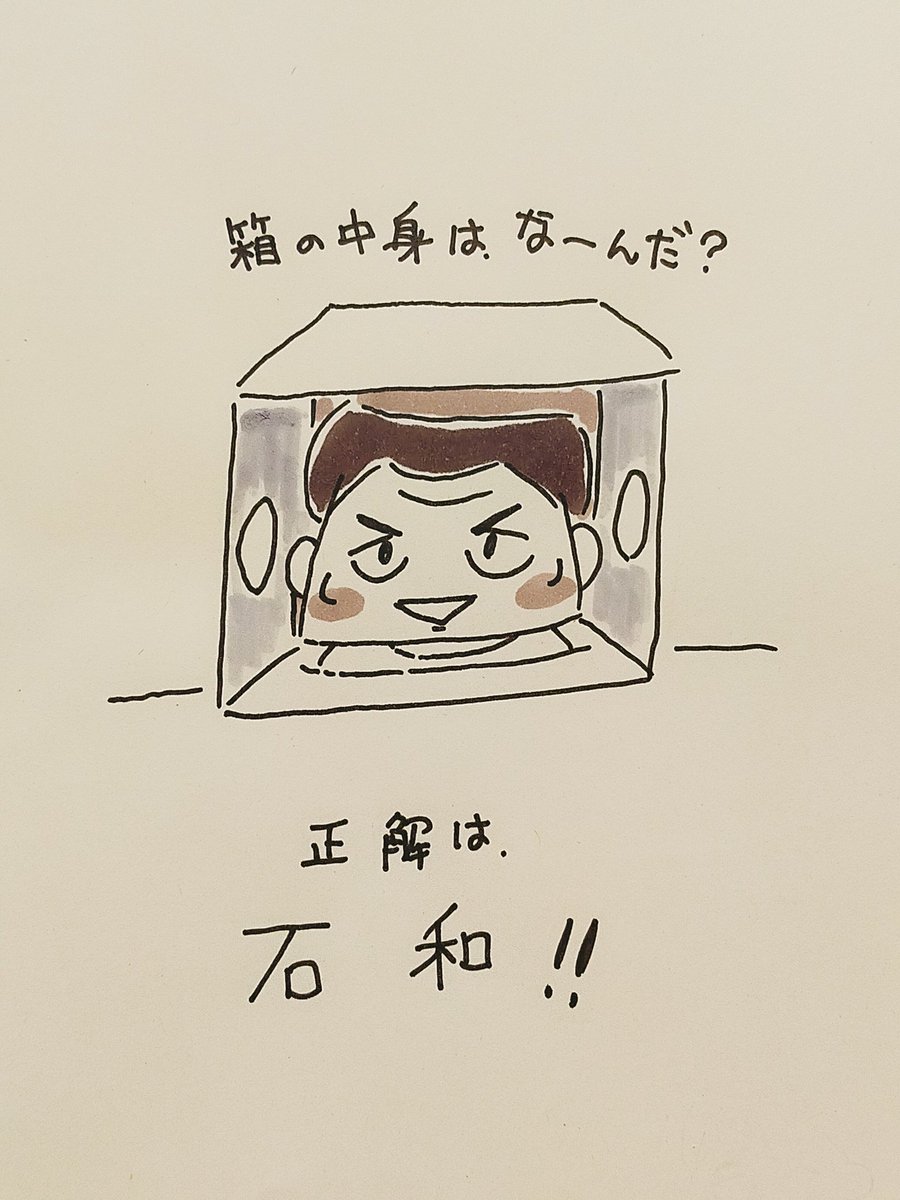 箱の中身は、なーんだ？
正解は、
石和!!